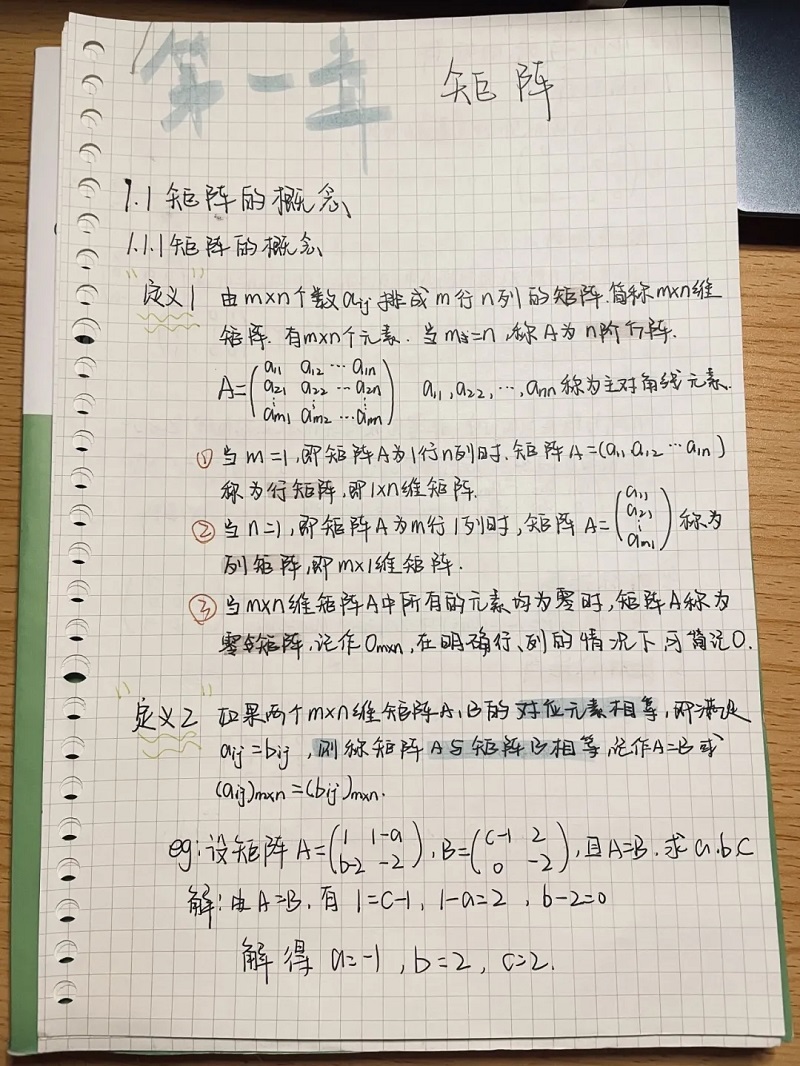 第一章 矩阵
1.1 矩阵的概念
1.1.1 矩阵的概念
"定义1" 由m×n个数aij排成m行n列的矩阵.简称m×n维
矩阵.有m×n个元素.当m=n,称A为n阶方阵.
A=(a11 a12 ⋯ a1n
a21 a22 ⋯ a2n
⋮ ⋮ ⋮
am1 am2 ⋯ amn) a11,a22,⋯,ann称为主对角线元素.
① 当m=1,即矩阵A为1行n列时.矩阵A=(a11 a12 ⋯ a1n)
称为行矩阵,即1×n维矩阵.
② 当n=1,即矩阵A为m行1列时,矩阵A=(a11 a21 ⋮ am1)称为
列矩阵,即m×1维矩阵.
③ 当m×n维矩阵A中所有的元素均为零时,矩阵A称为
零矩阵,记作Om×n,在明确行、列的情况下可简记O.
"定义2" 如果两个m×n维矩阵A,B的对位元素相等,即满足
aij=bij,则称矩阵A与矩阵B相等,记作A=B或
(aij)m×n=(bij)m×n.
eg:设矩阵A=(1 1-a
b-2 -2),B=(c-1 2
0 -2),且A=B.求a.b.c
解:由A=B.有1=c-1,1-a=2,b-2=0
解得 a=-1,b=2,c=2.